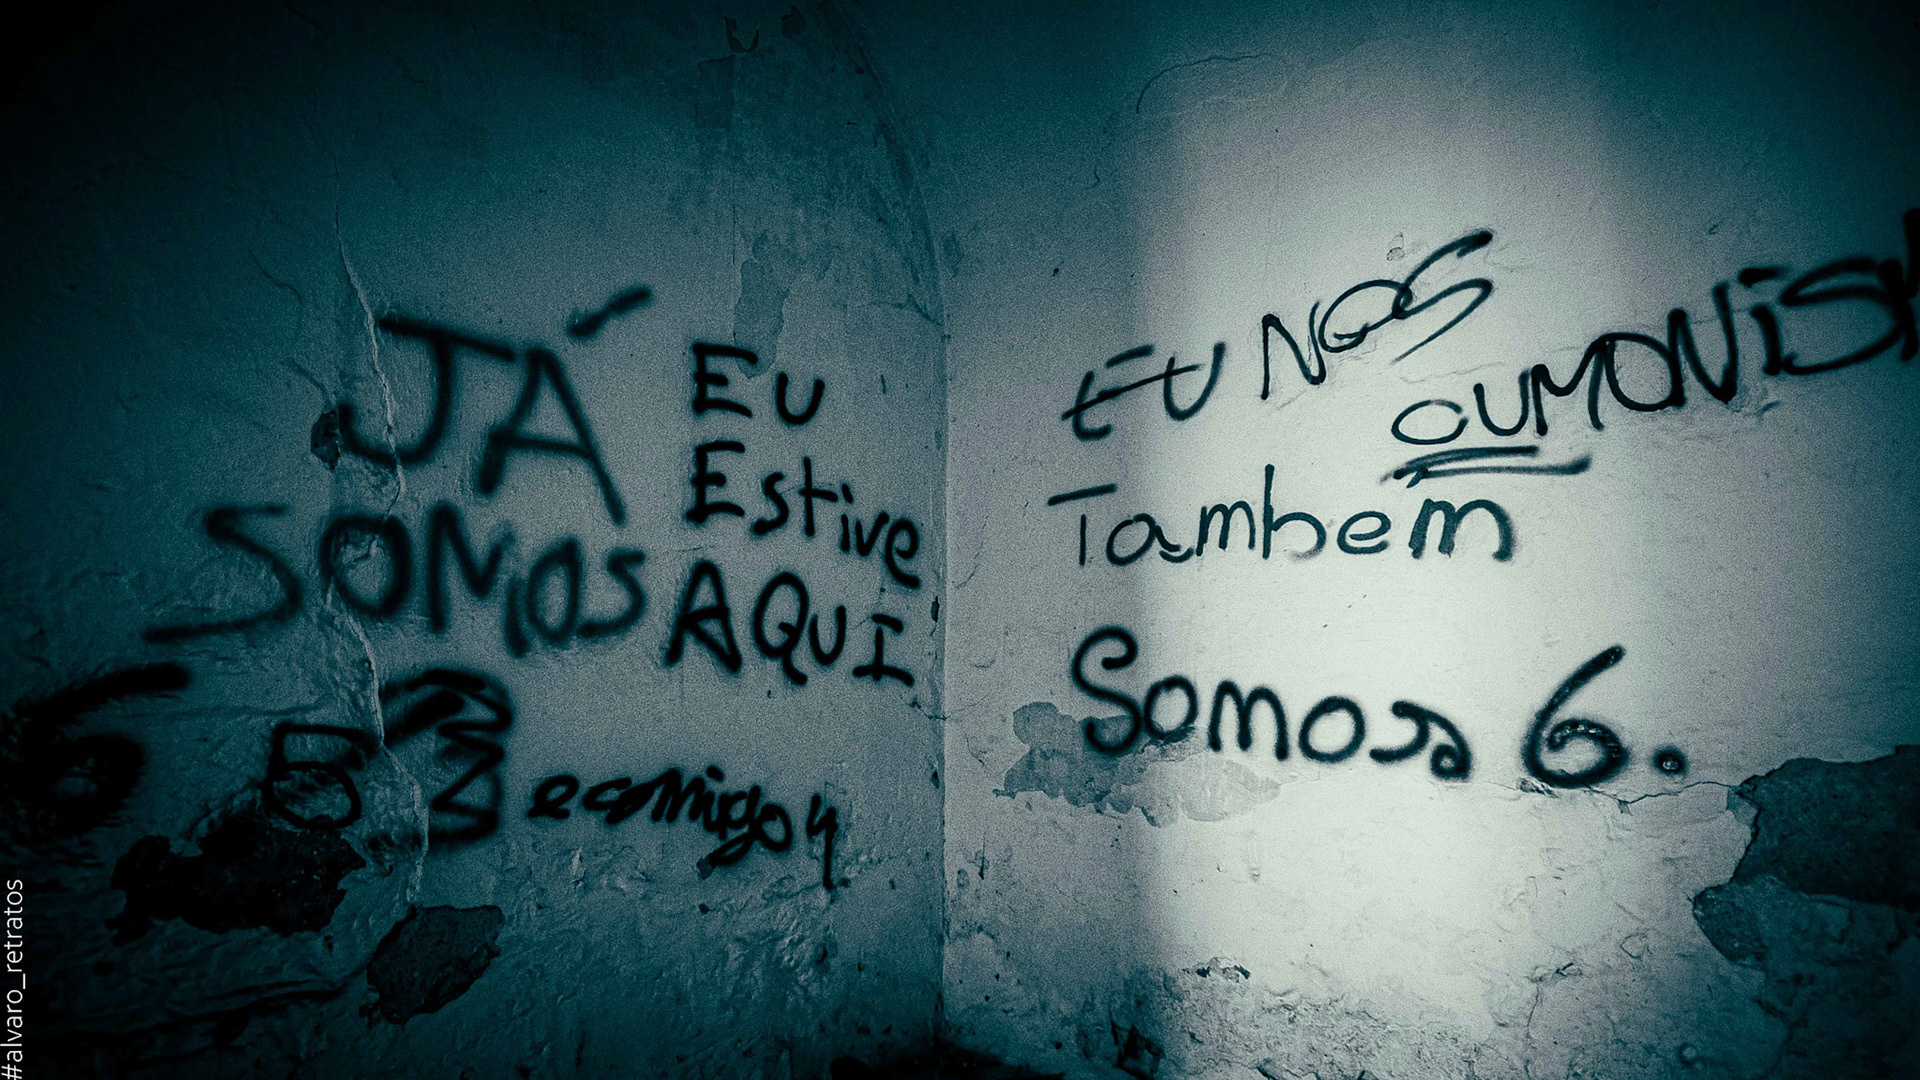 JÁ
SOMOS
EU
Estive
AQUI
6 5 3 2 e comigo 4
EU NOS
Tambem
Somos 6.
#alvaro_retratos